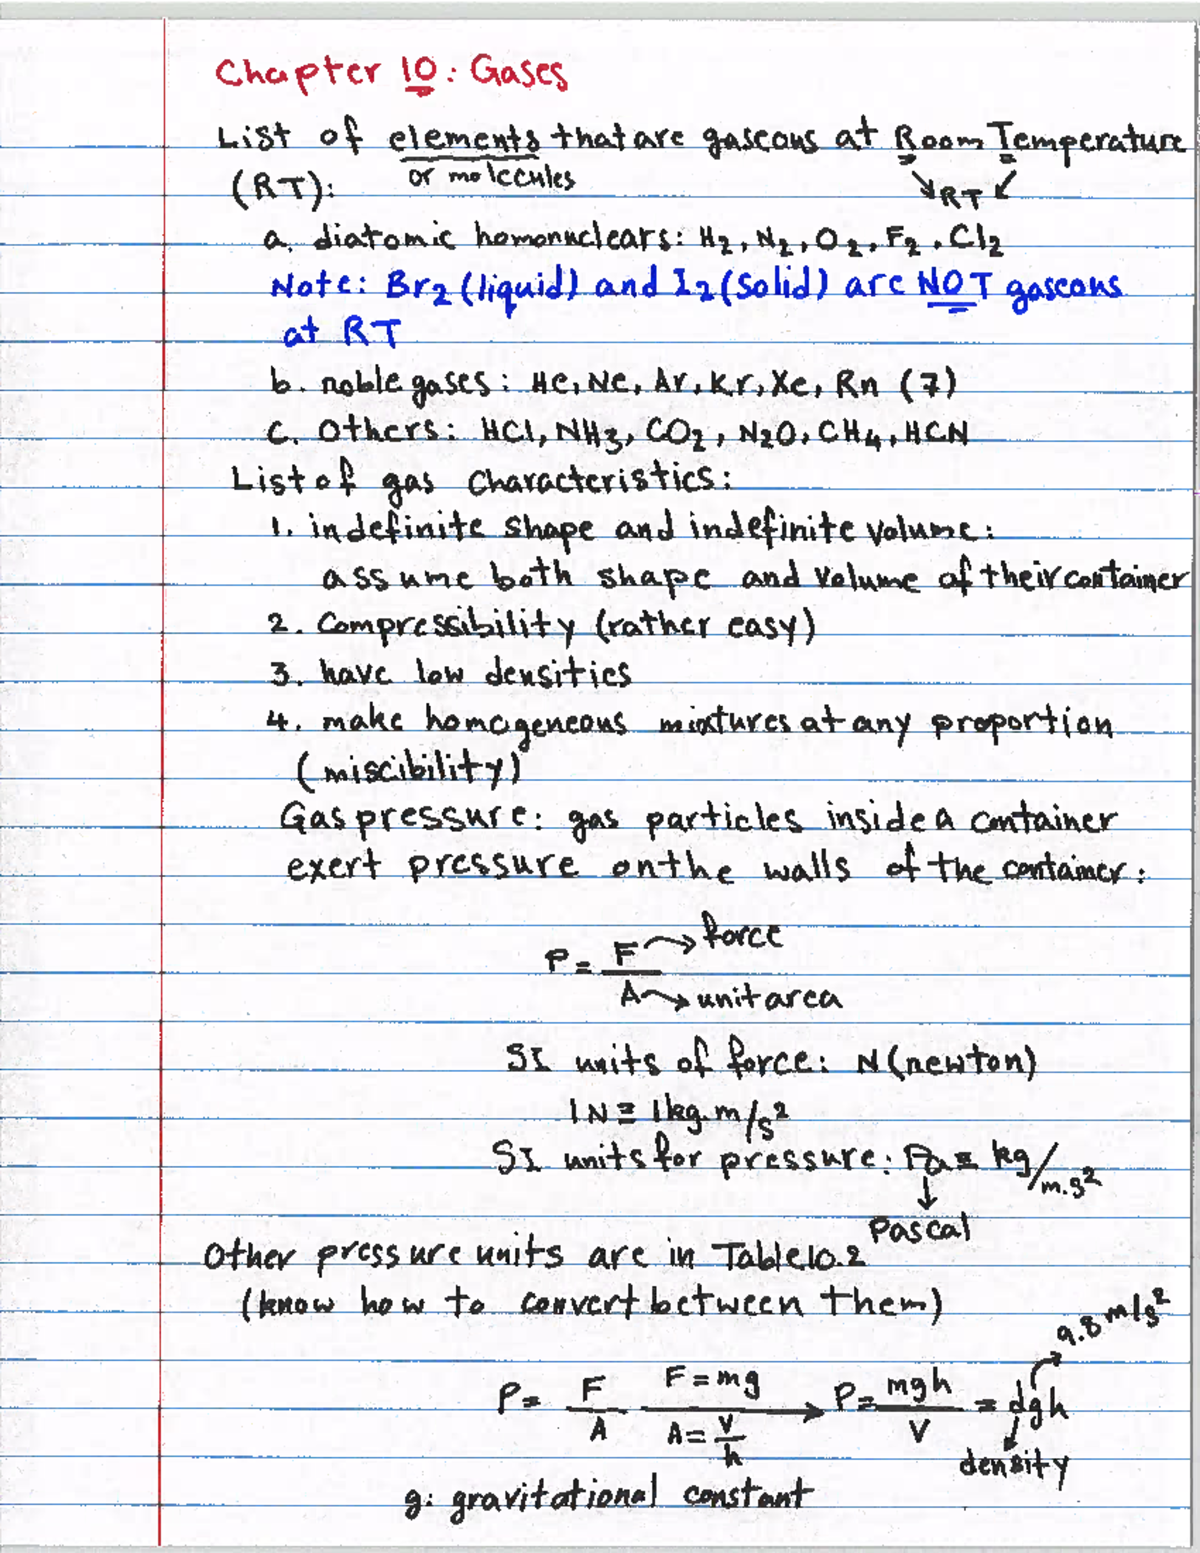 Chapter 10: Gases
List of elements that are gaseous at Room Temperature
or molecules
RT
(RT):
a. diatomic homonuclears: H2, N2, O2, F2, Cl2
Note: Br2 (liquid) and I2 (Solid) are NOT gaseous
at RT
b. noble gases: He, Ne, Ar, Kr, Xe, Rn (7)
C. Others: HCl, NH3, CO2, N2O, CH4, HCN
List of gas Characteristics:
1. indefinite shape and indefinite volume:
assume both shape and volume of their container
2. Compressibility (rather easy)
3. have low densities
4. make homogeneous mixtures at any proportion
(miscibility)
Gas pressure: gas particles inside a container
exert pressure on the walls of the container:
P = F/A
F → force
A → unit area
SI units of force: N (newton)
1N ≡ 1kg.m/s²
SI units for pressure: Pa ≡ kg/m.s²
Pascal
Other pressure units are in Table 10.2
(know how to convert between them)
9.8 m/s²
P = F/A  F = mg  A = V/h → P = mgh/V = dgh
density
g: gravitational constant